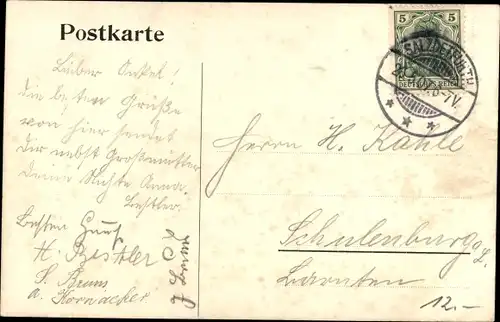 Postkarte
Lieber Onkel!
die besten Grüße
von hier sendet
dir nebst Großmutter
Deine Nichte Anna.
Besten Gruß
H. Bestler
S. Brum
a. Kornacker
5 5
DEUTSCHES REICH
SALZDETFURTH
6-7V.
Herrn H. Kahle
Schulenburg a/L.
12.-